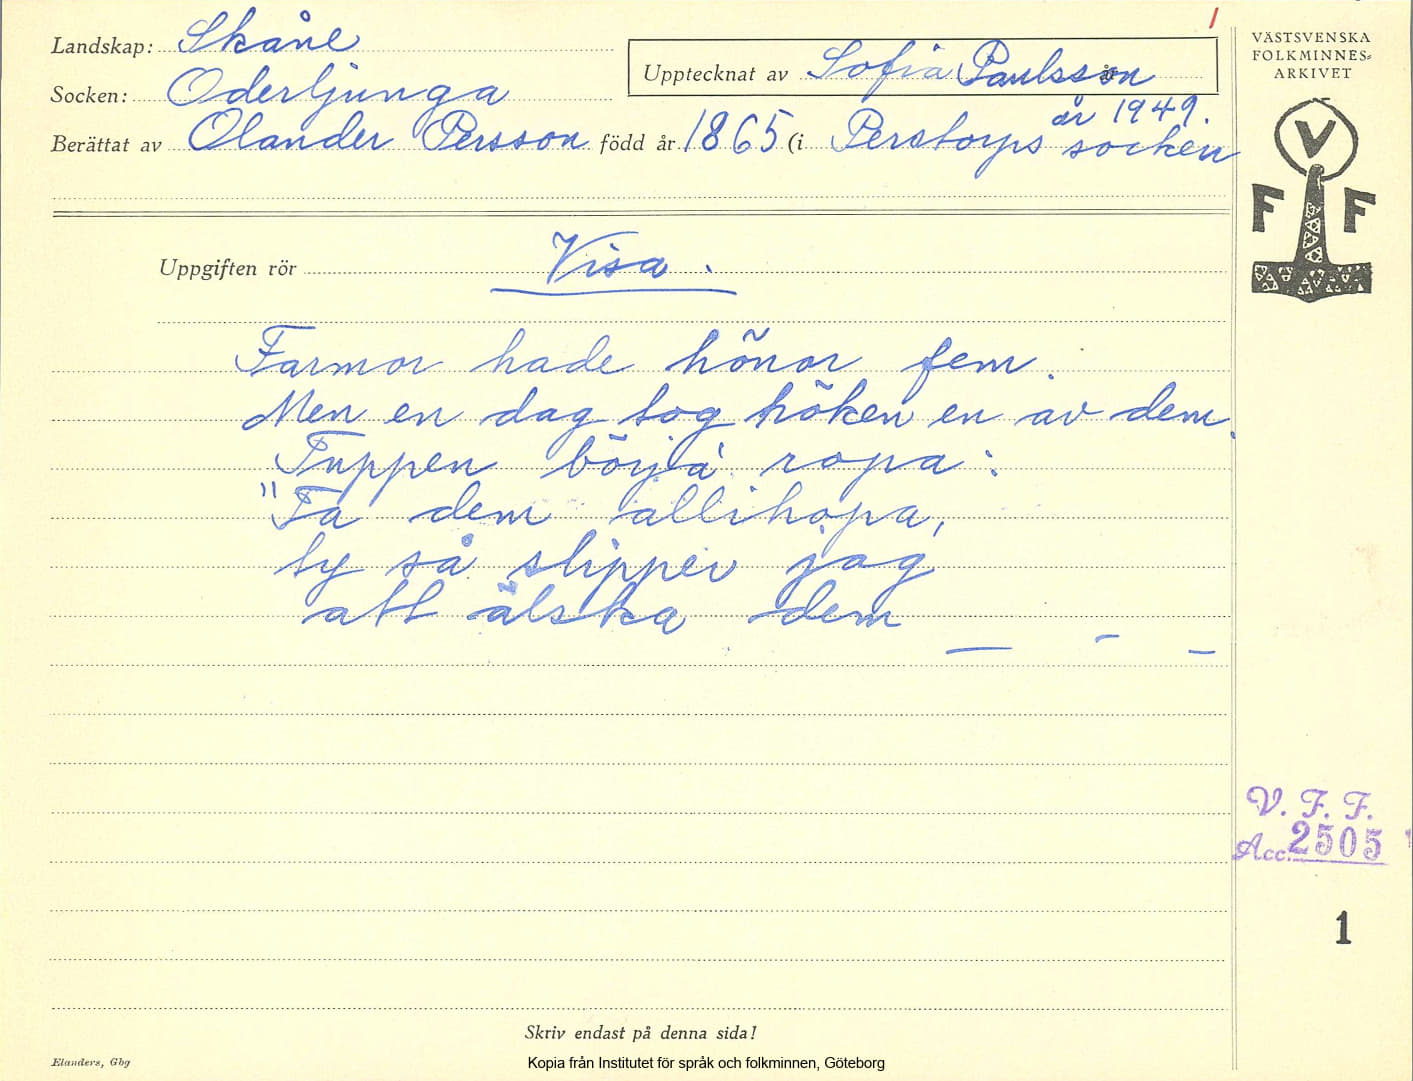 1
Landskap: Skåne
Upptecknat av Sofia Paulsson
Socken: Oderljunga
år 1949.
Berättat av Olander Persson född år 1865 (i Perstorps socken
VÄSTSVENSKA
FOLKMINNES=
ARKIVET
V
F F
Uppgiften rör Visa.
Farmor hade hönor fem.
Men en dag tog höken en av dem.
Tuppen börja' ropa:
"Ta dem allihopa,
ty så slipper jag
att älska dem — — —
V. F. F.
Acc. 2505
1
Skriv endast på denna sida!
Elanders, Gbg
Kopia från Institutet för språk och folkminnen, Göteborg